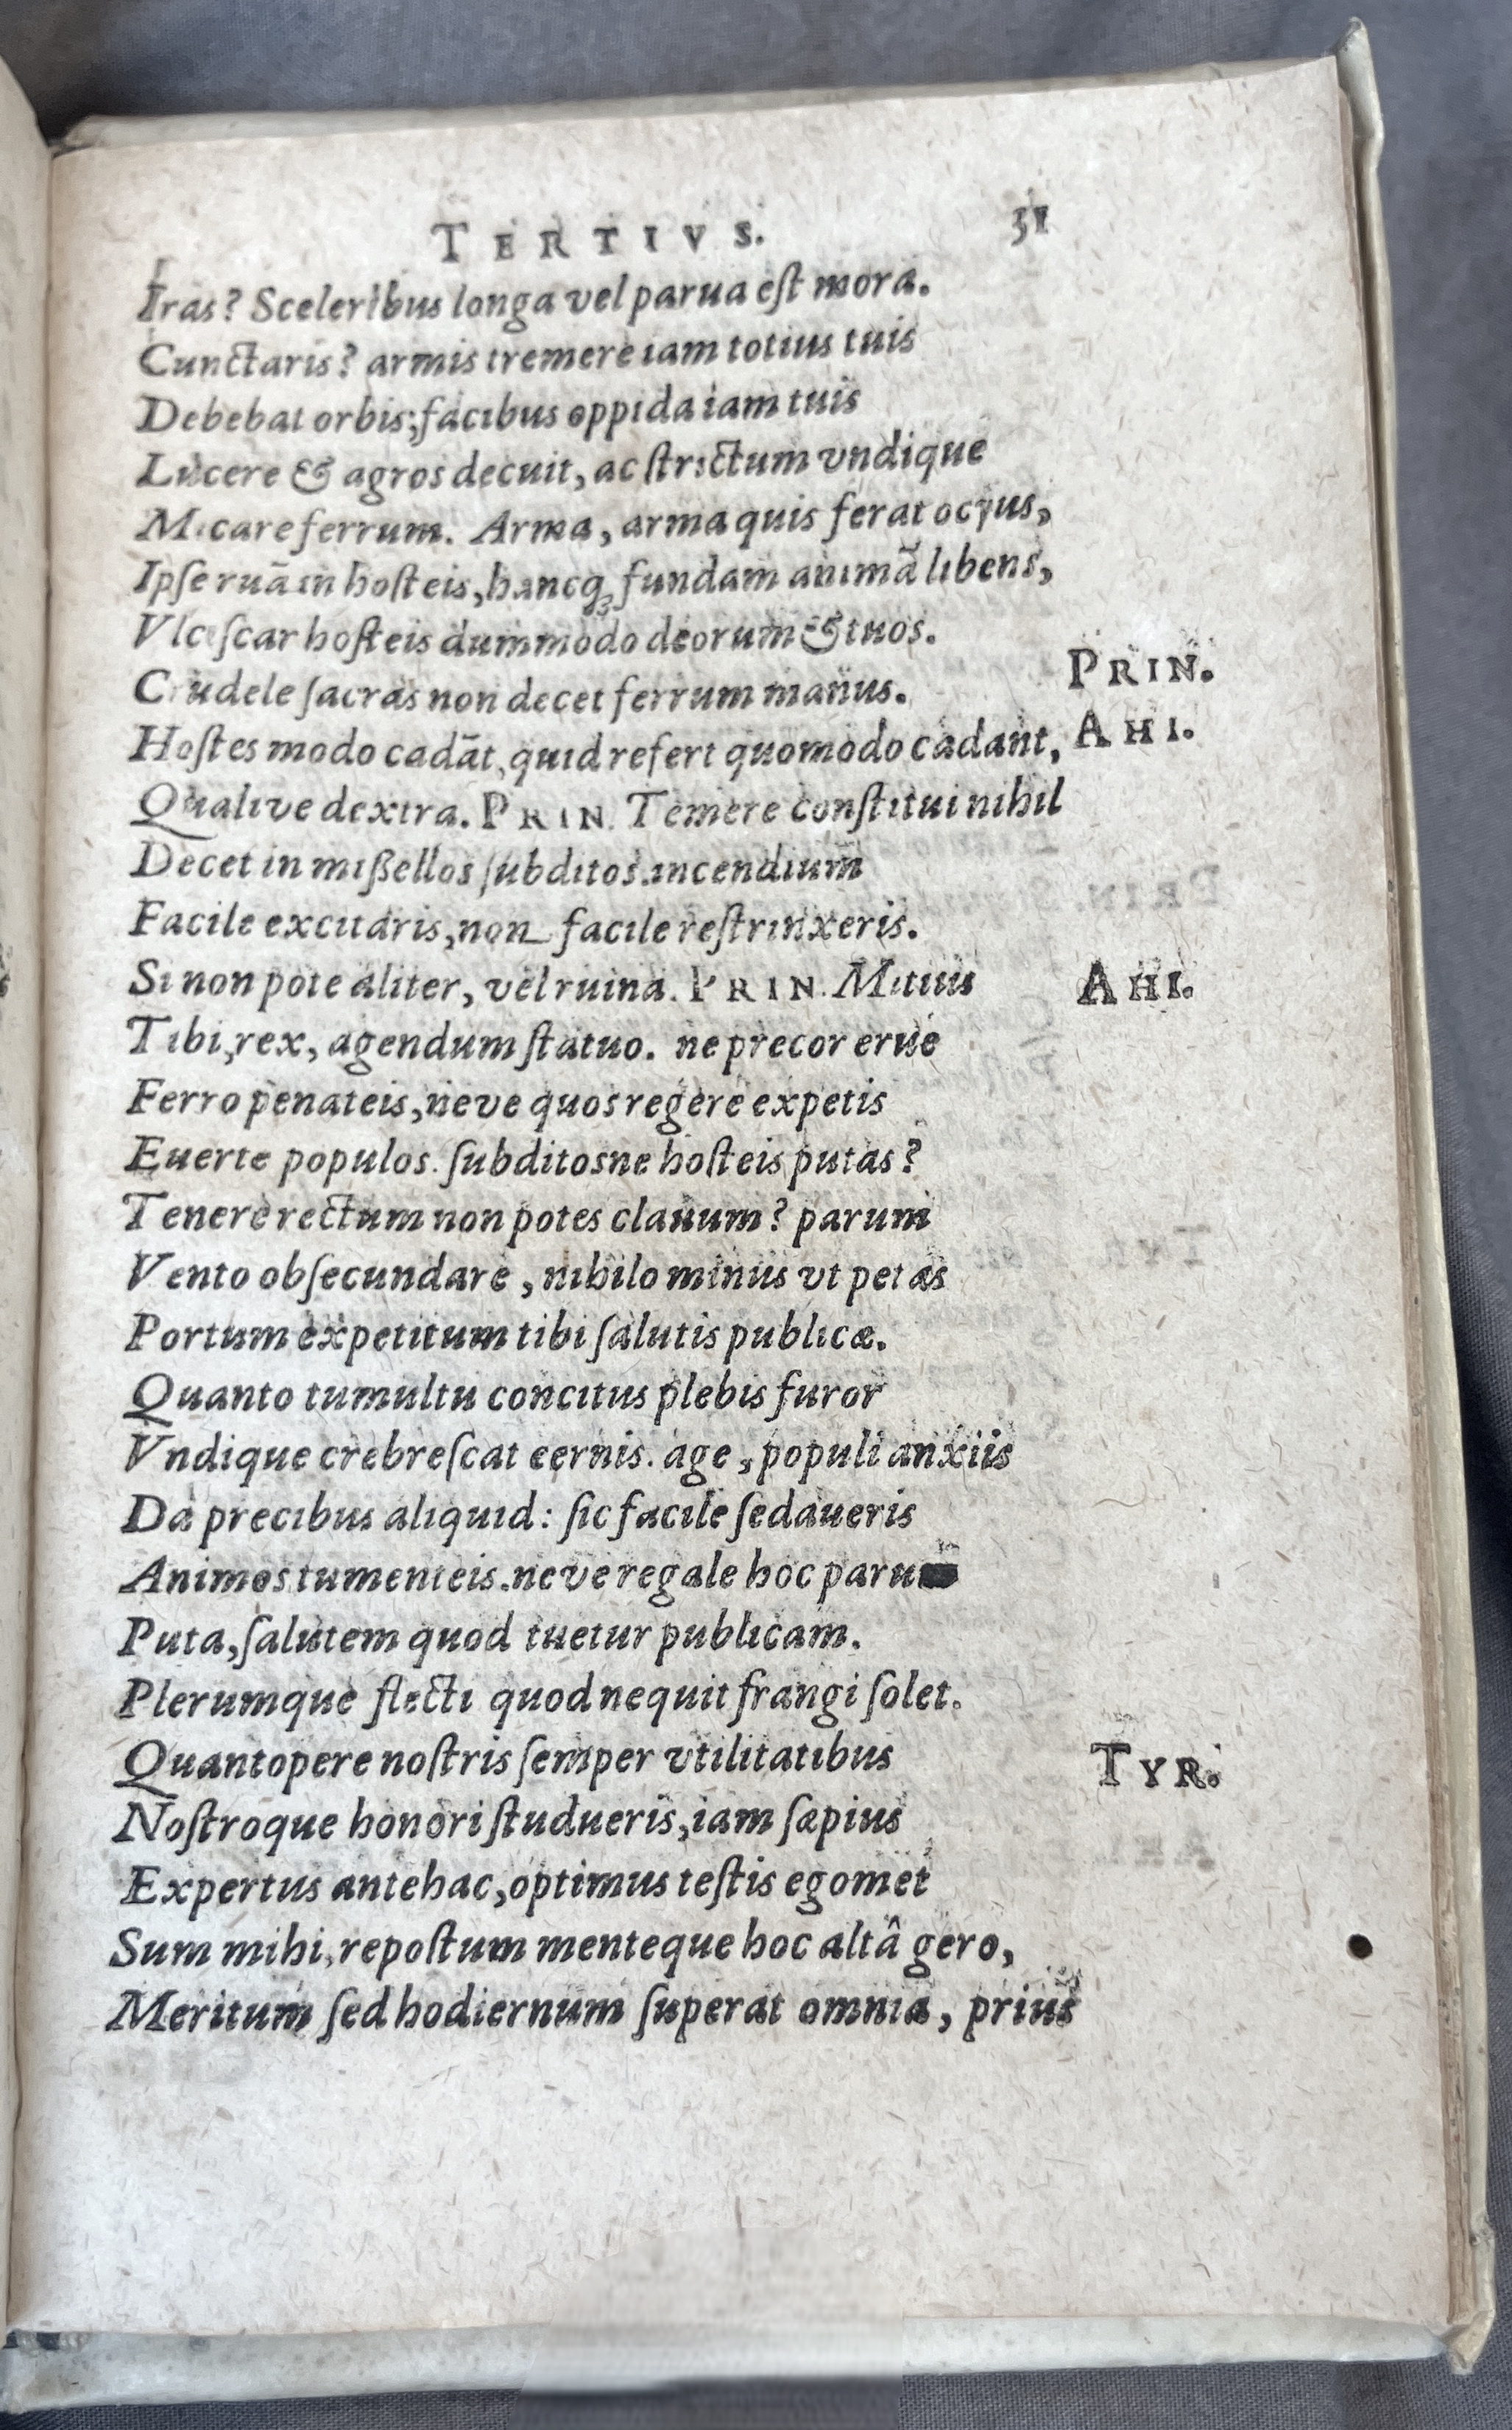 TERTIVS. 31
Iras? Sceleribus longa vel parua eſt mora.
Cunctaris? armis tremere iam totius tuis
Debebat orbis; facibus oppida iam tuis
Lucere & agros decuit, ac ſtrictum vndique
Micare ferrum. Arma, arma quis ferat ocyus,
Ipſe ruā in hoſteis, hancq; fundam animā libens,
Vlciſcar hoſteis dummodo deorum & tuos.
Crudele ſacras non decet ferrum manus. PRIN.
Hoſtes modo cadāt, quid refert quomodo cadant, AHI.
Qualive dextra. PRIN. Temere conſtitui nihil
Decet in mißellos ſubditos. incendium
Facile excitaris, non facile reſtrinxeris.
Si non pote aliter, vel ruina. PRIN. Mitius AHI.
Tibi, rex, agendum ſtatuo. ne precor erue
Ferro penateis, neve quos regere expetis
Euerte populos. ſubditosne hoſteis putas?
Tenere rectum non potes clauum? parum
Vento obſecundare, nihilo minus vt petas
Portum expetitum tibi ſalutis publicæ.
Quanto tumultu concitus plebis furor
Vndique crebreſcat cernis. age, populi anxiis
Da precibus aliquid: ſic facile ſedaueris
Animos tumenteis. neve regale hoc parum
Puta, ſalutem quod tuetur publicam.
Plerumque flecti quod nequit frangi ſolet.
Quantopere noſtris ſemper vtilitatibus TYR.
Noſtroque honori ſtudueris, iam ſæpius
Expertus antehac, optimus teſtis egomet
Sum mihi, repoſtum menteque hoc altâ gero,
Meritum ſed hodiernum ſuperat omnia, prius